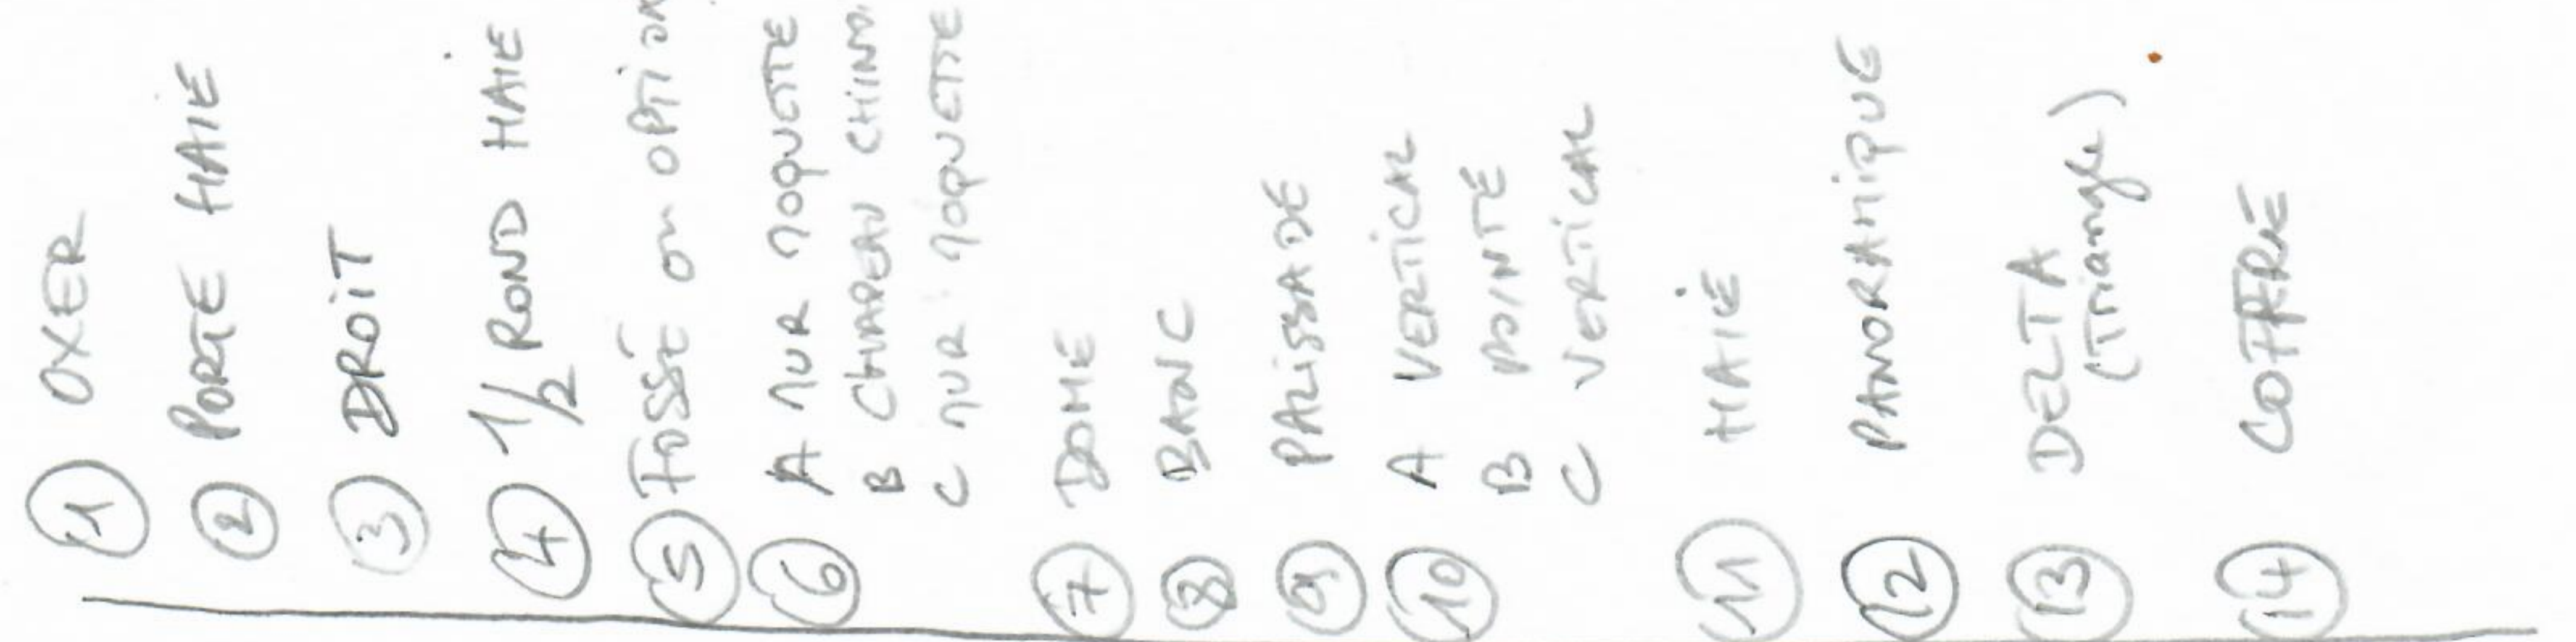 ① OXER
② PORTE HAIE
③ DROIT
④ 1/2 ROND HAIE
⑤ FOSSÉ on OPTION
⑥ A MUR MOQUETTE
B CHAPEAU CHINO.
C MUR MOQUETTE
⑦ DOME
⑧ BANC
⑨ PALISSADE
⑩ A VERTICAL
B POINTE
C VERTICAL
⑪ HAIE
⑫ PANORAMIQUE
⑬ DELTA
(Triangle)
⑭ COFFRE